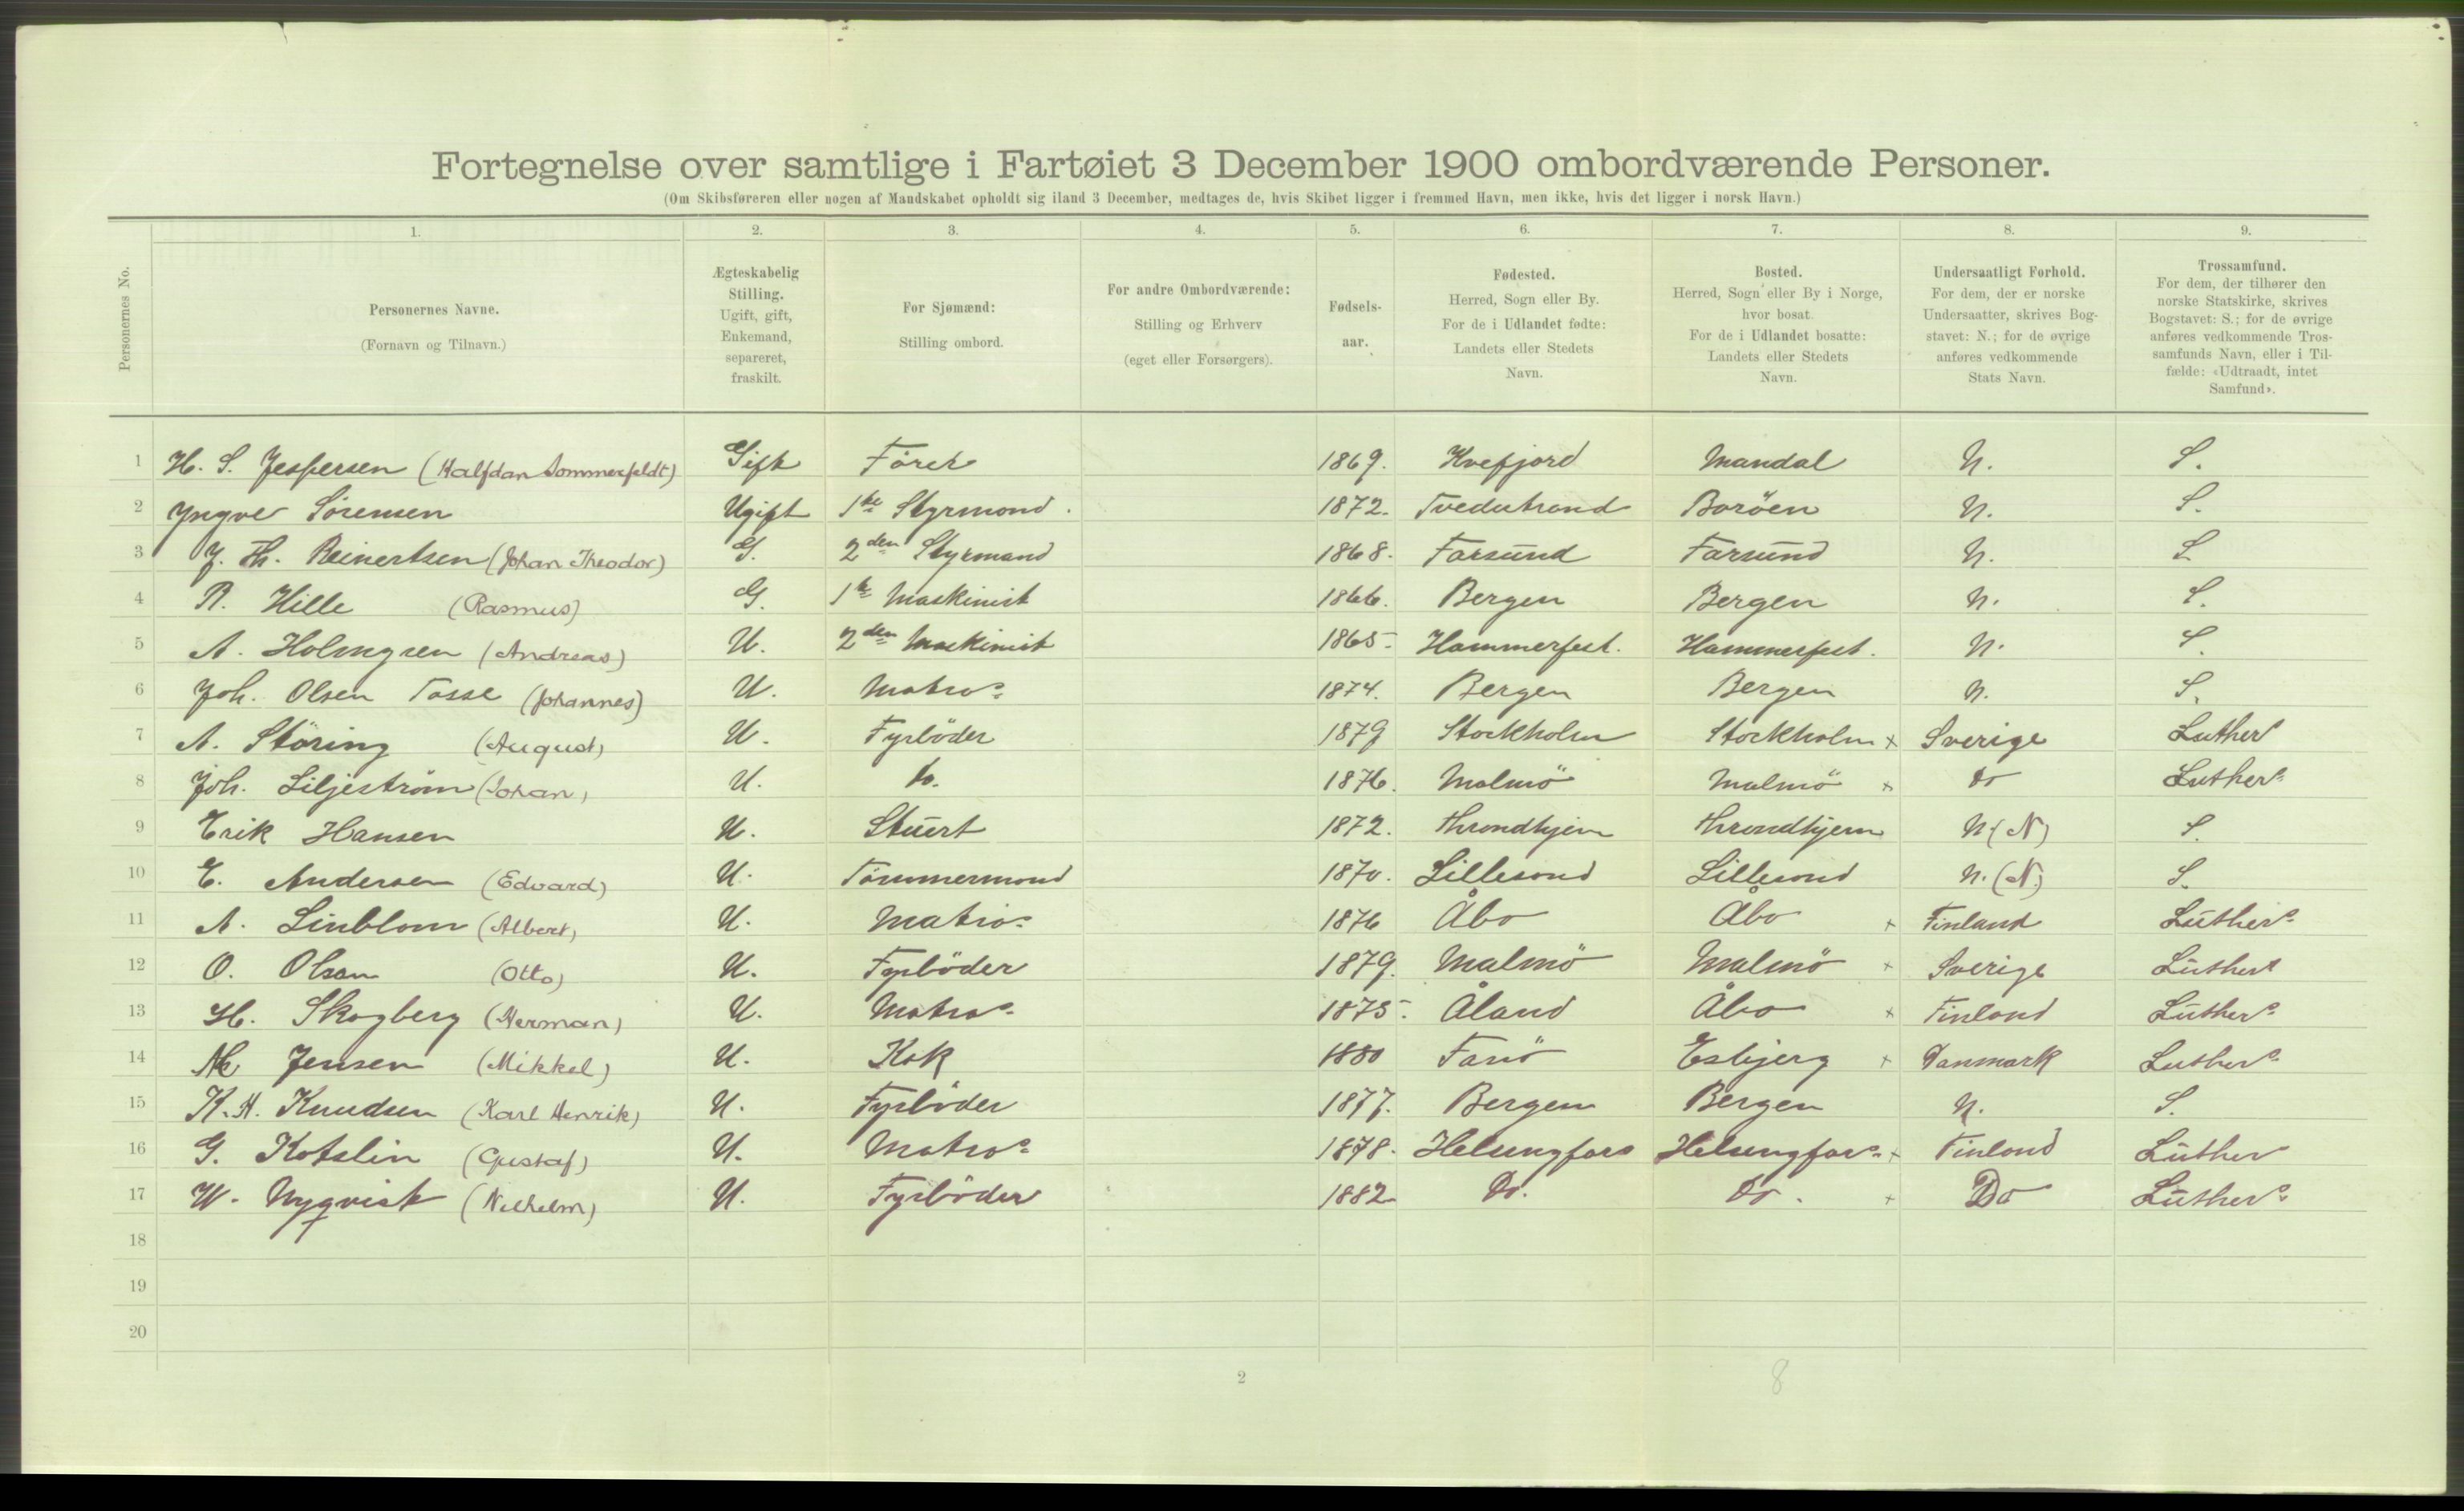 Fortegnelse over samtlige i Fartøiet 3 December 1900 ombordværende Personer.
(Om Skibsføreren eller nogen af Mandskabet opholdt sig iland 3 December, medtages de, hvis Skibet ligger i fremmed Havn, men ikke, hvis det ligger i norsk Havn.)
Personernes No.
1. 2. 3. 4. 5. 6. 7. 8. 9.
Personernes Navne.
(Fornavn og Tilnavn.)
Ægteskabelig
Stilling.
Ugift, gift,
Enkemand,
separeret,
fraskilt.
For Sjømænd:
Stilling ombord.
For andre Ombordværende:
Stilling og Erhverv
(eget eller Forsørgers).
Fødsels-
aar.
Fødested.
Herred, Sogn eller By.
For de i Udlandet fødte:
Landets eller Stedets
Navn.
Bosted.
Herred, Sogn eller By i Norge,
hvor bosat.
For de i Udlandet bosatte:
Landets eller Stedets
Navn.
Undersaatligt Forhold.
For dem, der er norske
Undersaatter, skrives Bog-
stavet: N.; for de øvrige
anføres vedkommende
Stats Navn.
Trossamfund.
For dem, der tilhører den
norske Statskirke, skrives
Bogstavet: S.; for de øvrige
anføres vedkommende Tros-
samfunds Navn, eller i Til-
fælde: «Udtraadt, intet
Samfund».
1 H. S. Jespersen (Halfdan Sommerfeldt) Gift Förer 1869. Kvefjord Mandal N. S.
2 Yngve Sörensen Ugift 1ste Styrmand. 1872. Tvedestrand Boröen N. S.
3 J. Th. Reinertsen (Johan Theodor) G. 2den Styrmand 1868. Farsund Farsund N. S
4 R. Hille (Rasmus) G. 1ste Maskinist 1866. Bergen Bergen N. S.
5 A. Holmgren (Andreas) U. 2den Maskinist 1865. Hammerfest. Hammerfest. N. S.
6 Joh. Olsen Tosse (Johannes) U. Matros 1874. Bergen Bergen N. S.
7 A. Störing (August) U. Fyrböder 1879 Stockholm Stockholm x Sverige Luther
8 Joh. Liljeström (Johan) U. Do. 1876. Malmö Malmö x Do Luthers
9 Erik Hansen U. Stuert 1872. Throndhjem Throndhjem N (N) S.
10 E. Andersen (Edvard) U. Tömmermand 1870. Lillesand Lillesand N. (N.) S.
11 A. Linblom (Albert) U. Matros 1876 Åbo Åbo x Finland Luthers
12 O. Olsan (Otto) U. Fyrböder 1879. Malmö Malmö x Sverige Luthers
13 H. Skogberg (Herman) U. Matros 1875. Åland Åbo x Finland Luthers
14 M Jensen (Mikkel) U. Kok 1880 Fanö Esbjerg x Danmark Luthers
15 K. H. Knudsen (Karl Henrik) U. Fyrböder 1877. Bergen Bergen N. S.
16 G. Kotslin (Gustaf) U. Matros 1878. Helsingfors Helsingfors x Finland Luther
17 W. Nyqvist (Vilhelm) U. Fyrböder 1882 Do. Do. x Do Luthers
18
19
20
2
8